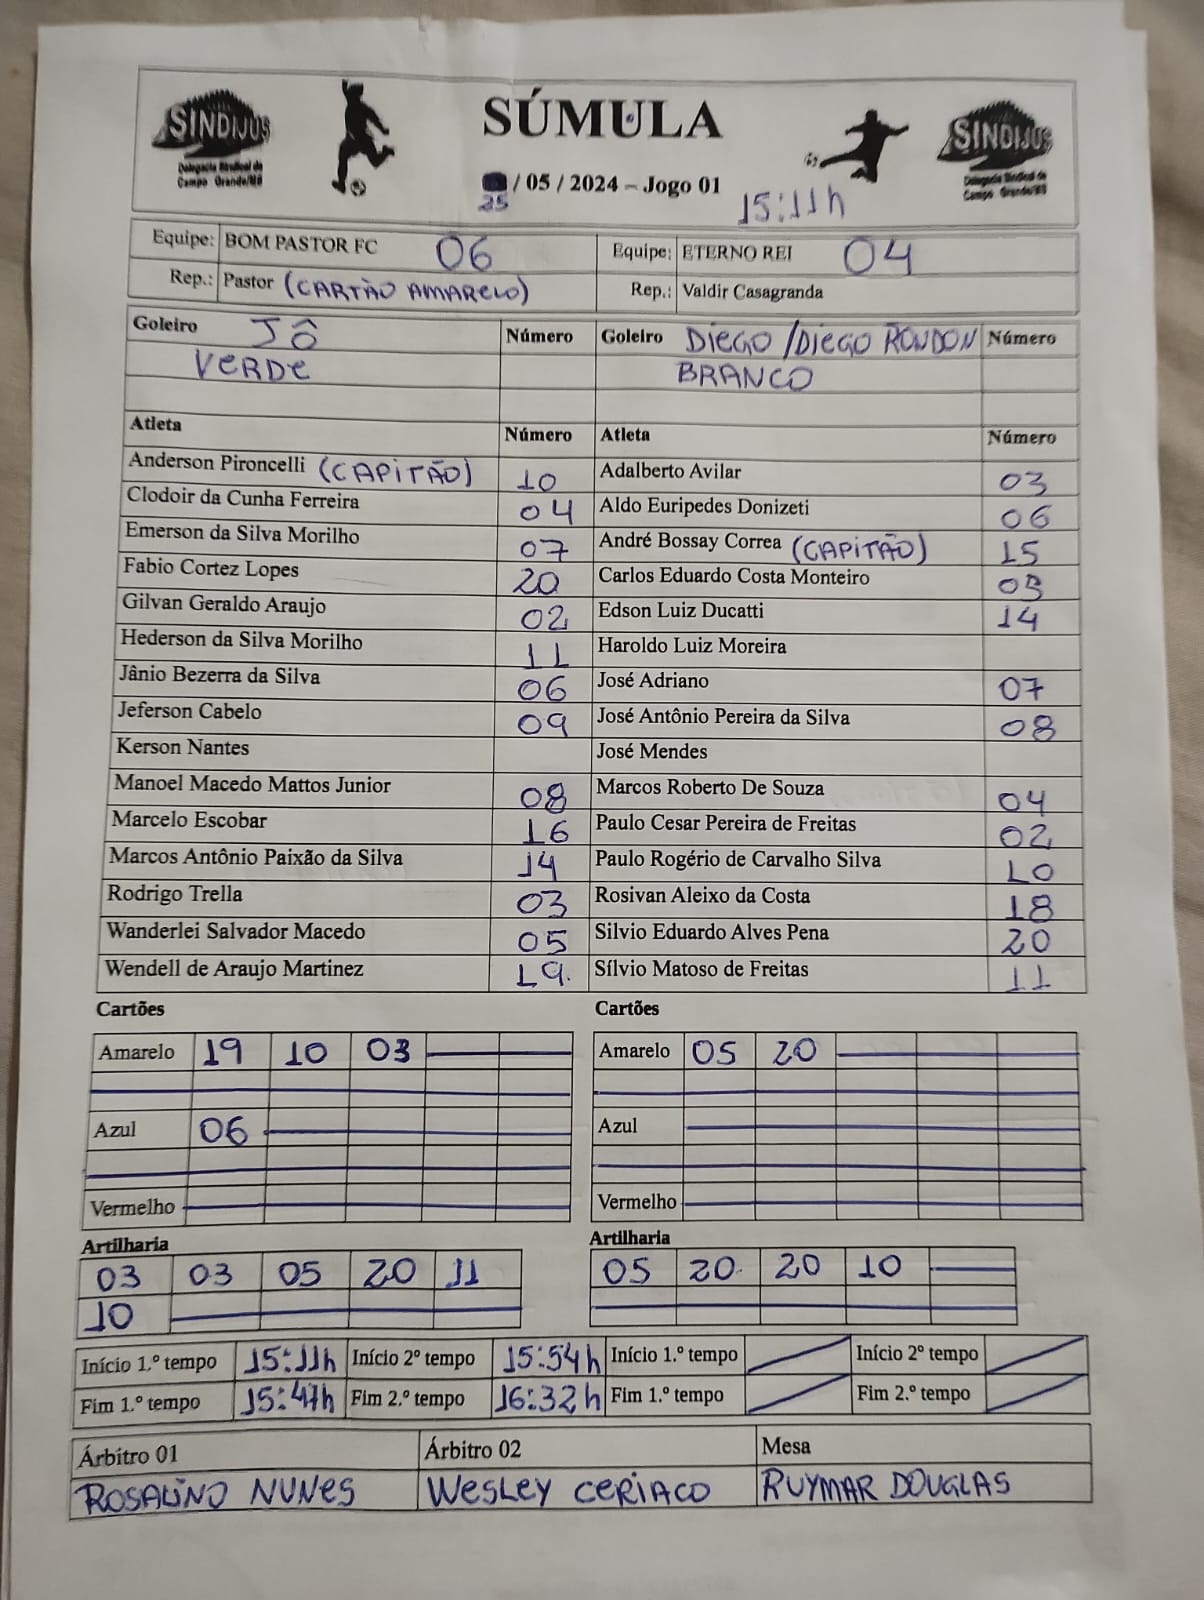 SINDIJUS
Delegacia Sindical de
Campo Grande/MS
SÚMULA
/ 05 / 2024 – Jogo 01
25
15:11h
SINDIJUS
Delegacia Sindical de
Campo Grande/MS
Equipe: BOM PASTOR FC 06 Equipe: ETERNO REI 04
Rep.: Pastor (CARTÃO AMARELO) Rep.: Valdir Casagranda
Goleiro JÔ Número Goleiro DIEGO / DIEGO RONDON Número
VERDE BRANCO
Atleta Número Atleta Número
Anderson Pironcelli (CAPITÃO) 10 Adalberto Avilar 03
Clodoir da Cunha Ferreira 04 Aldo Euripedes Donizeti 06
Emerson da Silva Morilho 07 André Bossay Correa (CAPITÃO) 15
Fabio Cortez Lopes 20 Carlos Eduardo Costa Monteiro
Gilvan Geraldo Araujo 02 Edson Luiz Ducatti 14
Hederson da Silva Morilho 11 Haroldo Luiz Moreira
Jânio Bezerra da Silva 06 José Adriano 07
Jeferson Cabelo 09 José Antônio Pereira da Silva 08
Kerson Nantes José Mendes
Manoel Macedo Mattos Junior 08 Marcos Roberto De Souza 04
Marcelo Escobar 16 Paulo Cesar Pereira de Freitas 02
Marcos Antônio Paixão da Silva 14 Paulo Rogério de Carvalho Silva 10
Rodrigo Trella 03 Rosivan Aleixo da Costa 18
Wanderlei Salvador Macedo 05 Silvio Eduardo Alves Pena 20
Wendell de Araujo Martinez 19. Sílvio Matoso de Freitas 11
Cartões Cartões
Amarelo 19 10 03 Amarelo 05 20
Azul 06 Azul
Vermelho Vermelho
Artilharia Artilharia
03 03 05 20 11 05 20 20 10
10
Início 1.º tempo 15:11h Início 2º tempo 15:54h Início 1.º tempo Início 2º tempo
Fim 1.º tempo 15:47h Fim 2.º tempo 16:32h Fim 1.º tempo Fim 2.º tempo
Árbitro 01 Árbitro 02 Mesa
ROSALINO NUNES WESLEY CERIACO RUYMAR DOUGLAS